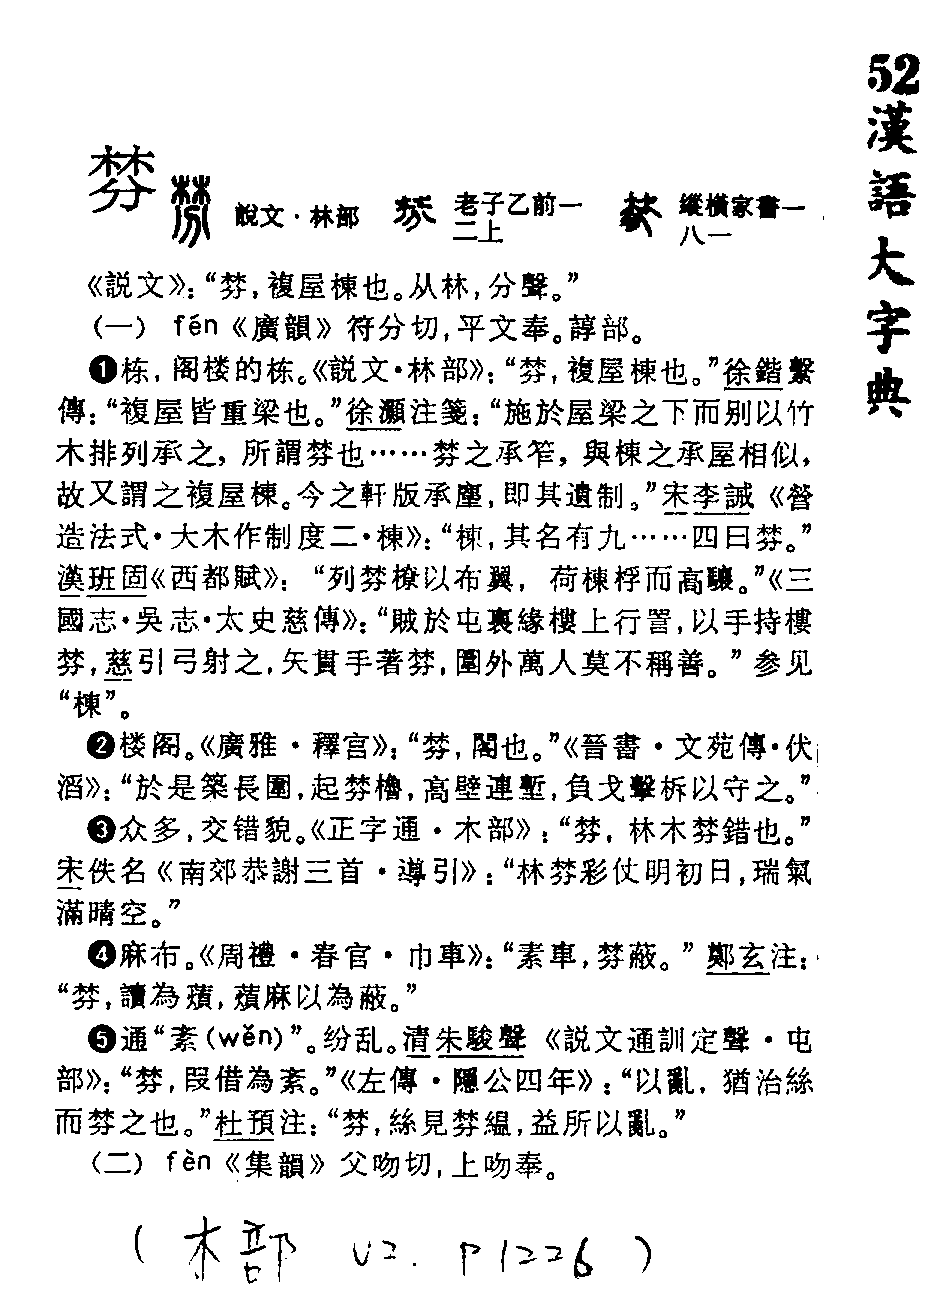 52
漢語大字典
棼
說文·林部 老子乙前一二上 縱橫家書一八一
《説文》：“棼，複屋棟也。从林，分聲。”
（一） fén《廣韻》符分切，平文奉。諄部。
❶栋，阁楼的栋。《説文·林部》：“棼，複屋棟也。”徐鍇繫
傳：“複屋皆重梁也。”徐灝注箋：“施於屋梁之下而别以竹
木排列承之，所謂棼也……棼之承笮，與棟之承屋相似，
故又謂之複屋棟。今之軒版承塵，即其遺制。”宋李誡《營
造法式·大木作制度二·棟》：“棟，其名有九……四曰棼。”
漢班固《西都賦》：“列棼橑以布翼，荷棟桴而高驤。”《三
國志·吳志·太史慈傳》：“賊於屯裏緣樓上行詈，以手持樓
棼，慈引弓射之，矢貫手著棼，圍外萬人莫不稱善。”参见
“棟”。
❷楼阁。《廣雅·釋宫》：“棼，閣也。”《晉書·文苑傳·伏
滔》：“於是築長圍，起棼櫓，高壁連塹，負戈擊柝以守之。”
❸众多，交错貌。《正字通·木部》：“棼，林木棼錯也。”
宋佚名《南郊恭謝三首·導引》：“林棼彩仗明初日，瑞氣
滿晴空。”
❹麻布。《周禮·春官·巾車》：“素車，棼蔽。”鄭玄注：
“棼，讀為薠，薠麻以為蔽。”
❺通“紊(wěn)”。纷乱。清朱駿聲《説文通訓定聲·屯
部》：“棼，叚借為紊。”《左傳·隱公四年》：“以亂，猶治絲
而棼之也。”杜預注：“棼，絲見棼緼，益所以亂。”
（二） fèn《集韻》父吻切，上吻奉。
（木部 V2. P1226）